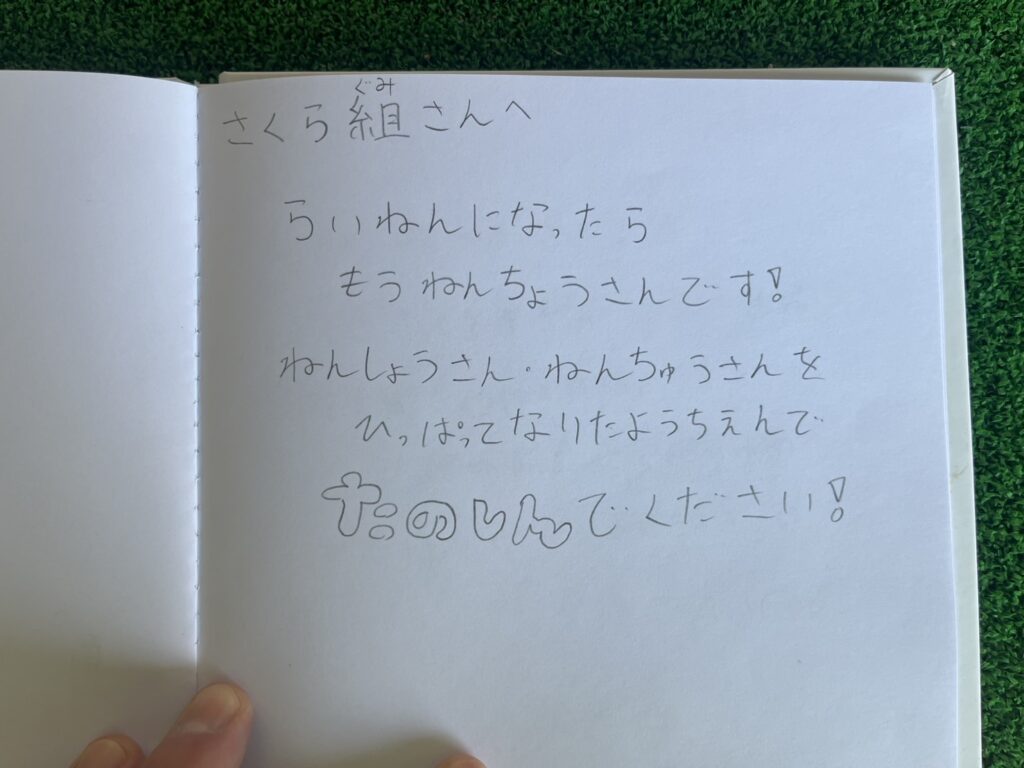 さくら組さんへ
ぐみ
らいねんになったら
もうねんちょうさんです!
ねんしょうさん・ねんちゅうさんを
ひっぱってなりたようちえんで
たのしんでください!